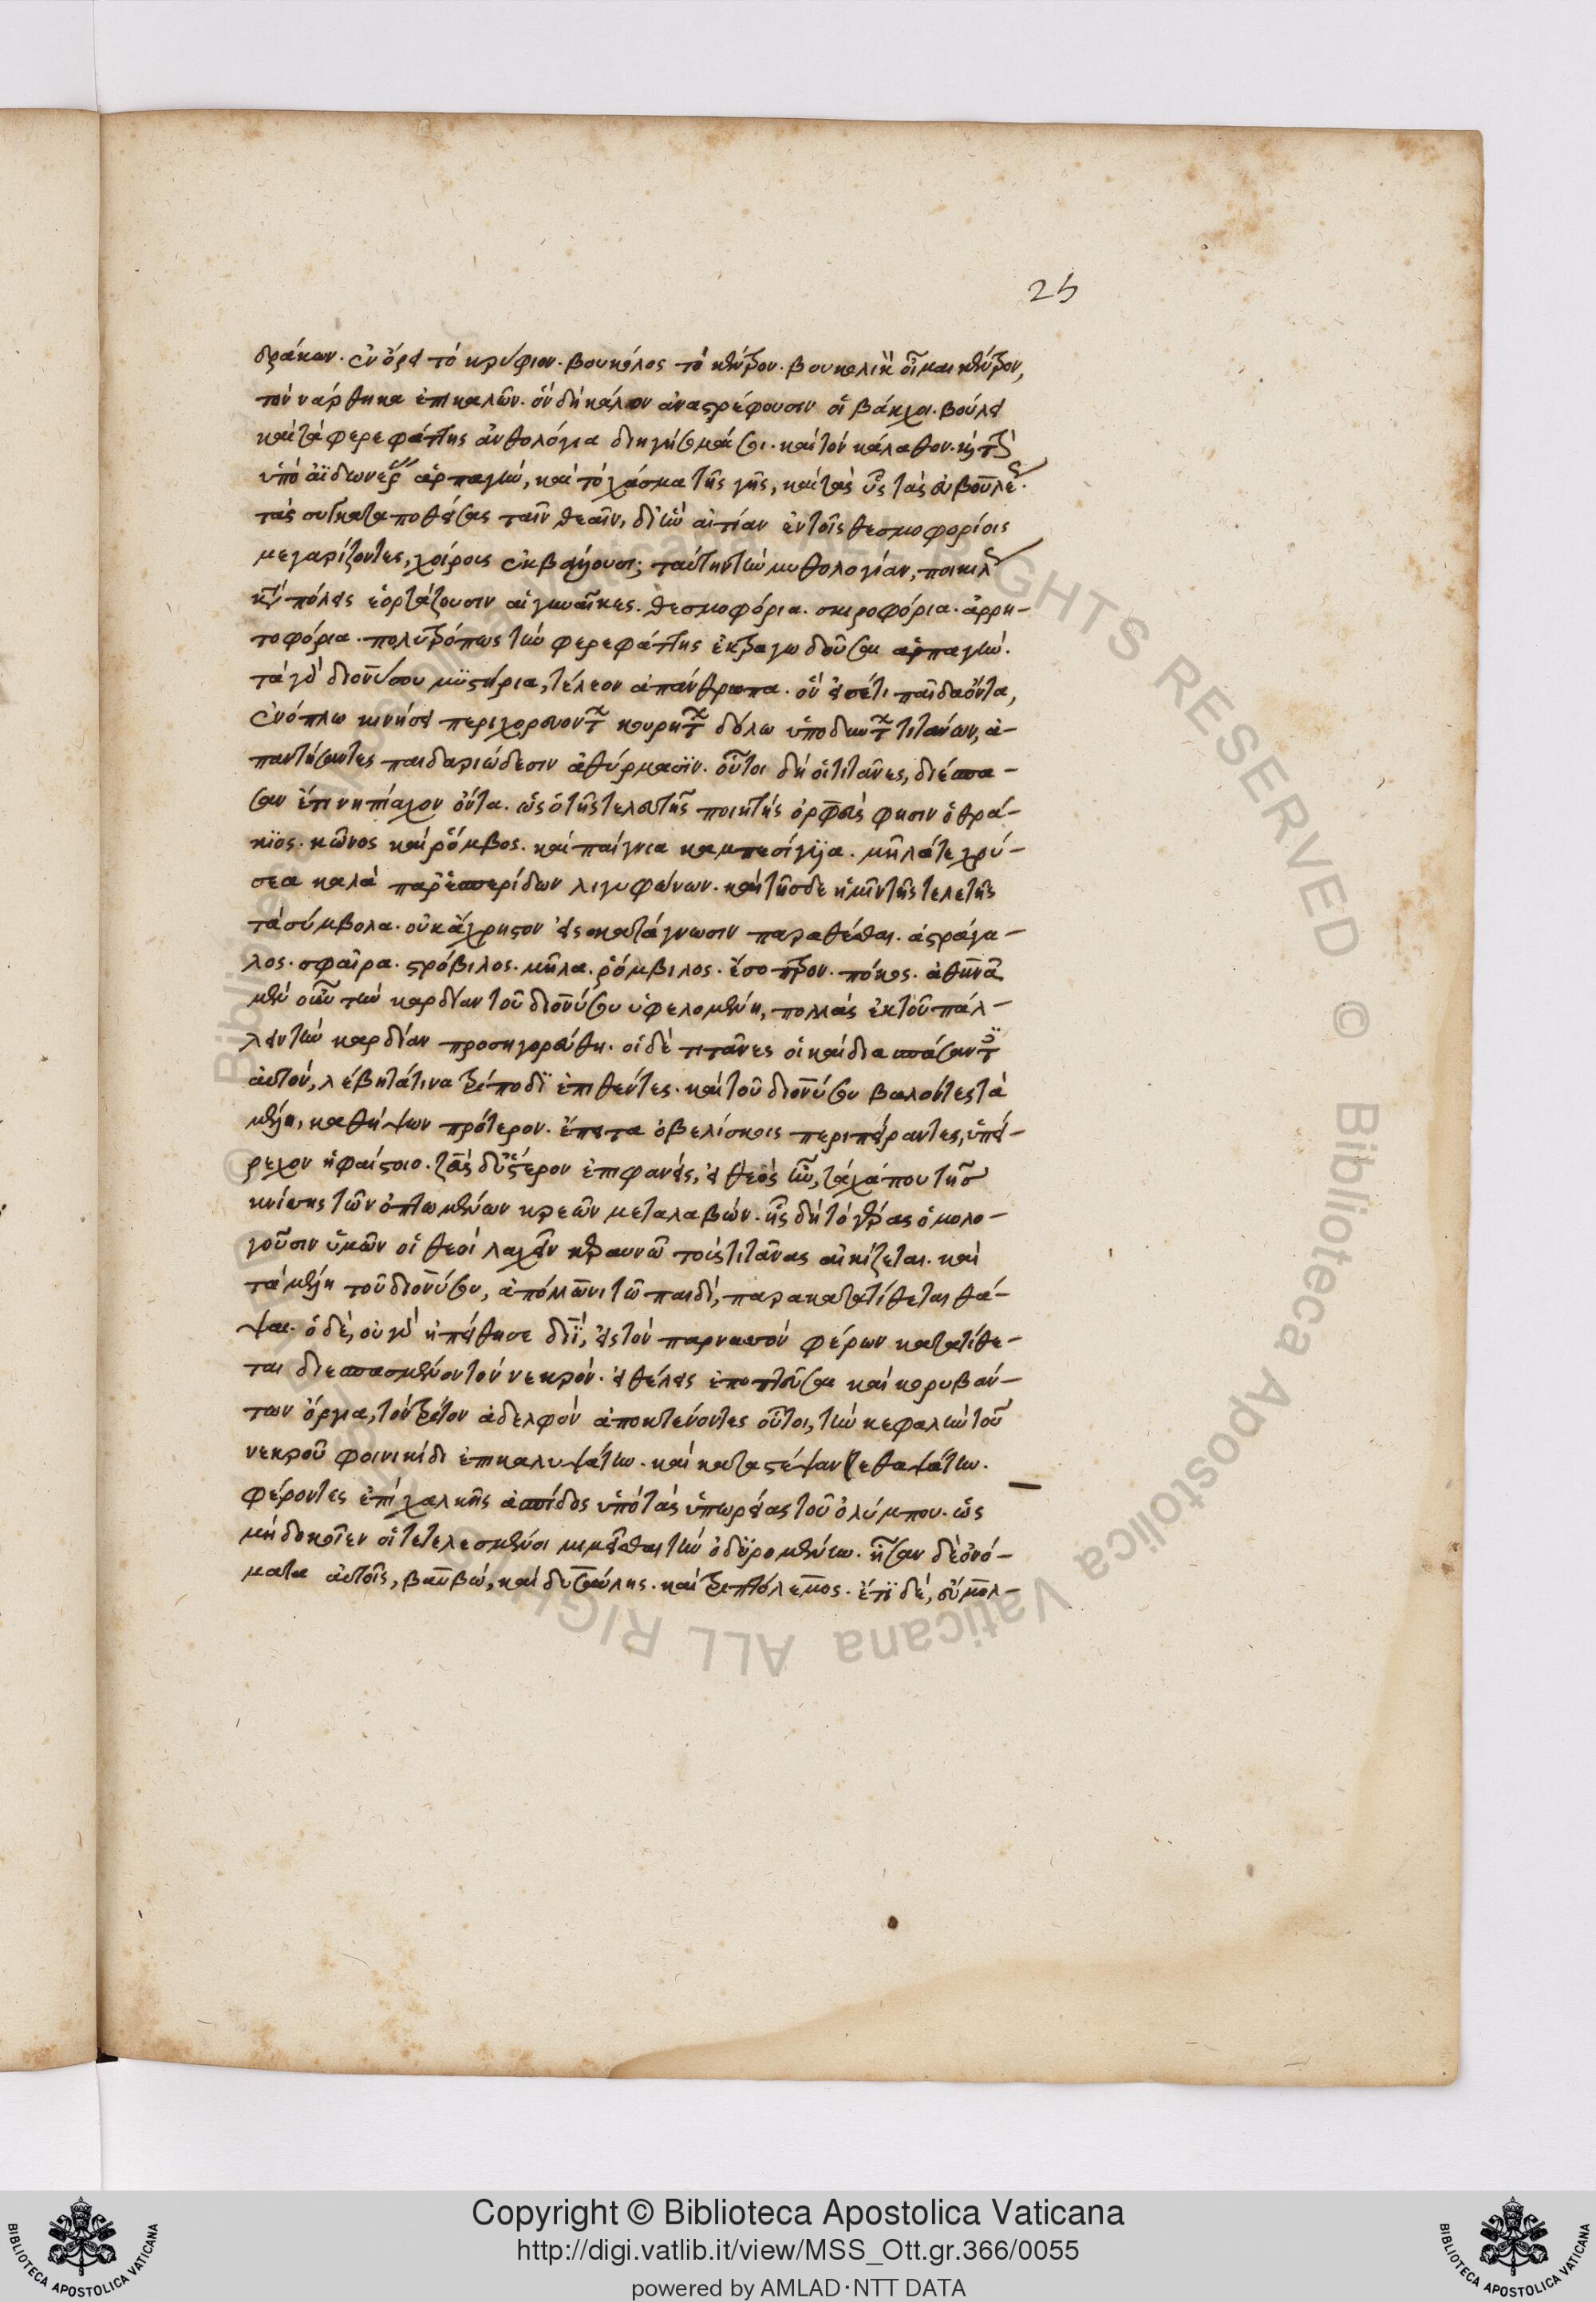 25
δράκων. ἐν ὄρει τὸ κρύφιον. βουκόλος τὸ κέντρον. βουκολικὸν οἶμαι κέντρον,
τὸν νάρθηκα ἐπικαλῶν. ὃν δὴ καλὸν ἀναστρέφουσιν οἱ βάκχοι. βούλει
καὶ τὰ φερεφάττης ἀνθολόγια διηγήσωμαί σοι. καὶ τὸν κάλαθον. καὶ τὴν
ὑπὸ ἀϊδωνέως ἁρπαγὴν, καὶ τὸ χάσμα τῆς γῆς, καὶ τὰς ὗς τὰς εὐβουλέως.
τὰς συγκαταποθείσας ταῖν θεαῖν, δι' ἣν αἰτίαν ἐν τοῖς θεσμοφορίοις
μεγαρίζοντες, χοίροις ἐκβάλλουσι; ταύτην τὴν μυθολογίαν, ποικίλως
κατὰ πόλεις ἑορτάζουσιν αἱ γυναῖκες. θεσμοφόρια. σκιροφόρια. ἀρρη-
τοφόρια. πολυτρόπως τὴν φερεφάττης ἐκτραγωδοῦσαι ἁρπαγήν.
τὰ γὰρ διονύσου μυστήρια, τέλεον ἀπάνθρωπα. ὃν εἰσέτι παῖδα ὄντα,
ἐνόπλω κινήσει περιχορευόντων κουρήτων δόλω ὑποδύντων τιτάνων, ἀ-
παντήσαντες παιδαριώδεσιν ἀθύρμασιν. οὗτοι δὴ οἱ τιτᾶνες, διέσπα-
σαν ἔτι νηπίαχον ὄντα. ὡς ὁ τῆς τελετῆς ποιητὴς ὀρφεύς φησιν ὁ θρά-
κιος. κῶνος καὶ ῥόμβος. καὶ παίγνια καμπεσίγυια. μῆλά τε χρύ-
σεα καλὰ παρ' ἑσπερίδων λιγυφώνων. καὶ τῆσδε ἡμῖν τῆς τελετῆς
τὰ σύμβολα. οὐκ ἄχρηστον εἰς κατάγνωσιν παραθέσθαι. ἀστράγα-
λος. σφαῖρα. στρόβιλος. μῆλα. ῥόμβιλος. ἔσοπτρον. πόκος. ἀθηνᾶ
μὲν οὖν τὴν καρδίαν τοῦ διονύσου ὑφελομένη, παλλὰς ἐκ τοῦ πάλ-
λειν τὴν καρδίαν προσηγορεύθη. οἱ δὲ τιτᾶνες οἱ καὶ διασπάσαντες
αὐτόν, λέβητά τινα τρίποδι ἐπιθέντες. καὶ τοῦ διονύσου βαλόντες τὰ
μέλη, καθήψουν πρότερον. ἔπειτα ὀβελίσκοις περιπείραντες, ὑπεί-
ρεχον ἡφαίστοιο. ζεὺς δ' ὕστερον ἐπιφανείς, εἰ θεὸς ἦν, τάχα που τῆς
κνίσης τῶν ὀπτωμένων κρεῶν μεταλαβών. ἧς δὴ τὸ γέρας ὁμολο-
γοῦσιν ὑμῶν οἱ θεοὶ λαχεῖν κεραυνῶ τοὺς τιτᾶνας αἰκίζεται. καὶ
τὰ μέλη τοῦ διονύσου, ἀπόλλωνι τῶ παιδὶ, παρακατατίθεται θά-
ψαι. ὁ δὲ, οὐ γὰρ ἠπείθησε διῒ, εἰς τὸν παρνασὸν φέρων κατατίθε-
ται διεσπασμένον τὸν νεκρόν. εἰ θέλεις ἐποπτεῦσαι καὶ κορυβάν-
των ὄργια, τὸν τρίτον ἀδελφὸν ἀποκτείνοντες οὗτοι, τὴν κεφαλὴν τοῦ
νεκροῦ φοινικίδι ἐπικαλυψάτην. καὶ καταστέψαντε θαψάτην.
φέροντες ἐπὶ χαλκῆς ἀσπίδος ὑπὸ τὰς ὑπωρείας τοῦ ὀλύμπου. ὡς
μὴ δοκοῖεν οἱ τετελεσμένοι μιμεῖσθαι τὴν ὀδυρομένην. ἦσαν δὲ ὀνό-
ματα αὐτοῖς, βαυβώ, καὶ δυσαύλης. καὶ τριπτόλεμος. ἔτι δὲ, εὔμολ-
Copyright © Biblioteca Apostolica Vaticana
http://digi.vatlib.it/view/MSS_Ott.gr.366/0055
powered by AMLAD·NTT DATA